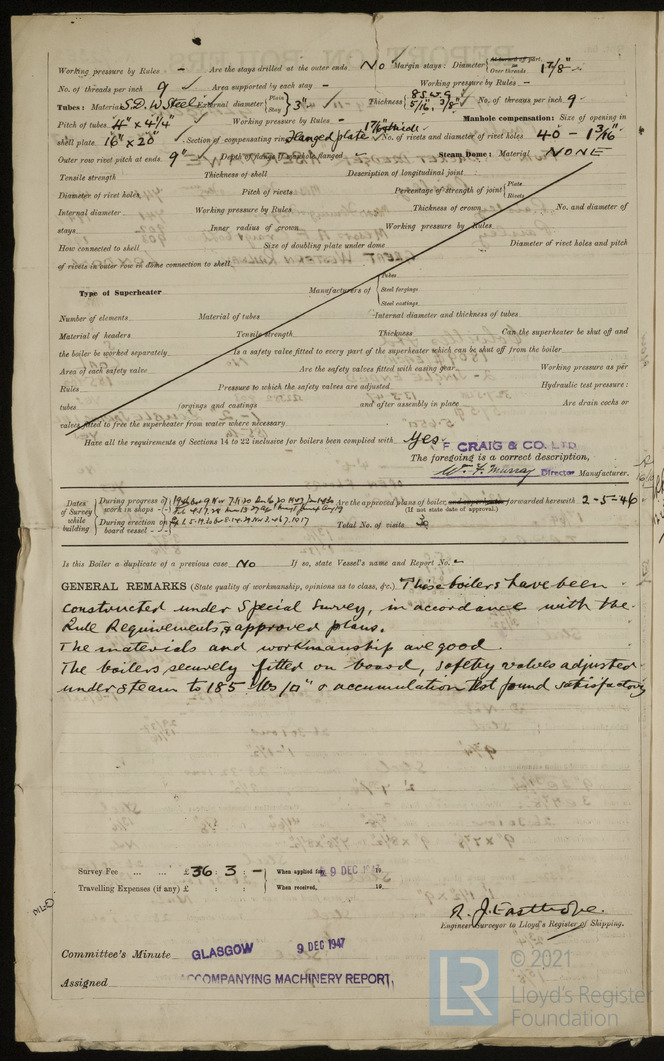 Working pressure by Rules - Are the stays drilled at the outer ends No Margin stays: Diameter { At turned off part, or Over threads 1 7/8"
No. of threads per inch 9 Area supported by each stay - Working pressure by Rules -
Tubes: Material S.D.W Steel External diameter { Plain Stay } 3" Thickness { 8 S.W.G. 5/16", 3/8" No. of threads per inch 9
Pitch of tubes 4" x 4 1/4" Working pressure by Rules - Manhole compensation: Size of opening in
shell plate 16" x 20" Section of compensating ring Flanged plate 1 7/16" thick No. of rivets and diameter of rivet holes 40 - 1 3/16"
Outer row rivet pitch at ends 9" Depth of flange if manhole flanged Steam Dome: Material NONE
Tensile strength Thickness of shell Description of longitudinal joint
Diameter of rivet holes Pitch of rivets Percentage of strength of joint { Plate Rivets
Internal diameter Working pressure by Rules Thickness of crown No. and diameter of
stays Inner radius of crown Working pressure by Rules
How connected to shell Size of doubling plate under dome Diameter of rivet holes and pitch
of rivets in outer row in dome connection to shell
Type of Superheater Manufacturers of { Tubes Steel forgings Steel castings
Number of elements Material of tubes Internal diameter and thickness of tubes
Material of headers Tensile strength Thickness Can the superheater be shut off and
the boiler be worked separately Is a safety valve fitted to every part of the superheater which can be shut off from the boiler
Area of each safety valve Are the safety valves fitted with easing gear Working pressure as per
Rules Pressure to which the safety valves are adjusted Hydraulic test pressure:
tubes forgings and castings and after assembly in place Are drain cocks or
valves fitted to free the superheater from water where necessary
Have all the requirements of Sections 14 to 22 inclusive for boilers been complied with Yes.
F. CRAIG & CO. LTD
The foregoing is a correct description,
Wm. F. Murray Director Manufacturer.
Dates of Survey while building { During progress of work in shops - - { During erection on board vessel - - -
Are the approved plans of boiler and superheater forwarded herewith 2-5-46
(If not state date of approval.)
Total No. of visits
Is this Boiler a duplicate of a previous case No If so, state Vessel's name and Report No. -
GENERAL REMARKS (State quality of workmanship, opinions as to class, &c.) These boilers have been
constructed under Special Survey, in accordance with the
Rule Requirements & approved plans.
The materials and workmanship are good.
The boilers securely fitted on board, safety valves adjusted
under steam to 185 lbs/□" & accumulation test found satisfactory
Survey Fee ... ... £ 36 : 3 : - When applied for 9 DEC 1947 19
Travelling Expenses (if any) £ : : When received, 19
R. J. Easthope.
Engineer Surveyor to Lloyd's Register of Shipping.
Committee's Minute GLASGOW 9 DEC 1947
Assigned ACCOMPANYING MACHINERY REPORT.
LR © 2021
Lloyd's Register
Foundation